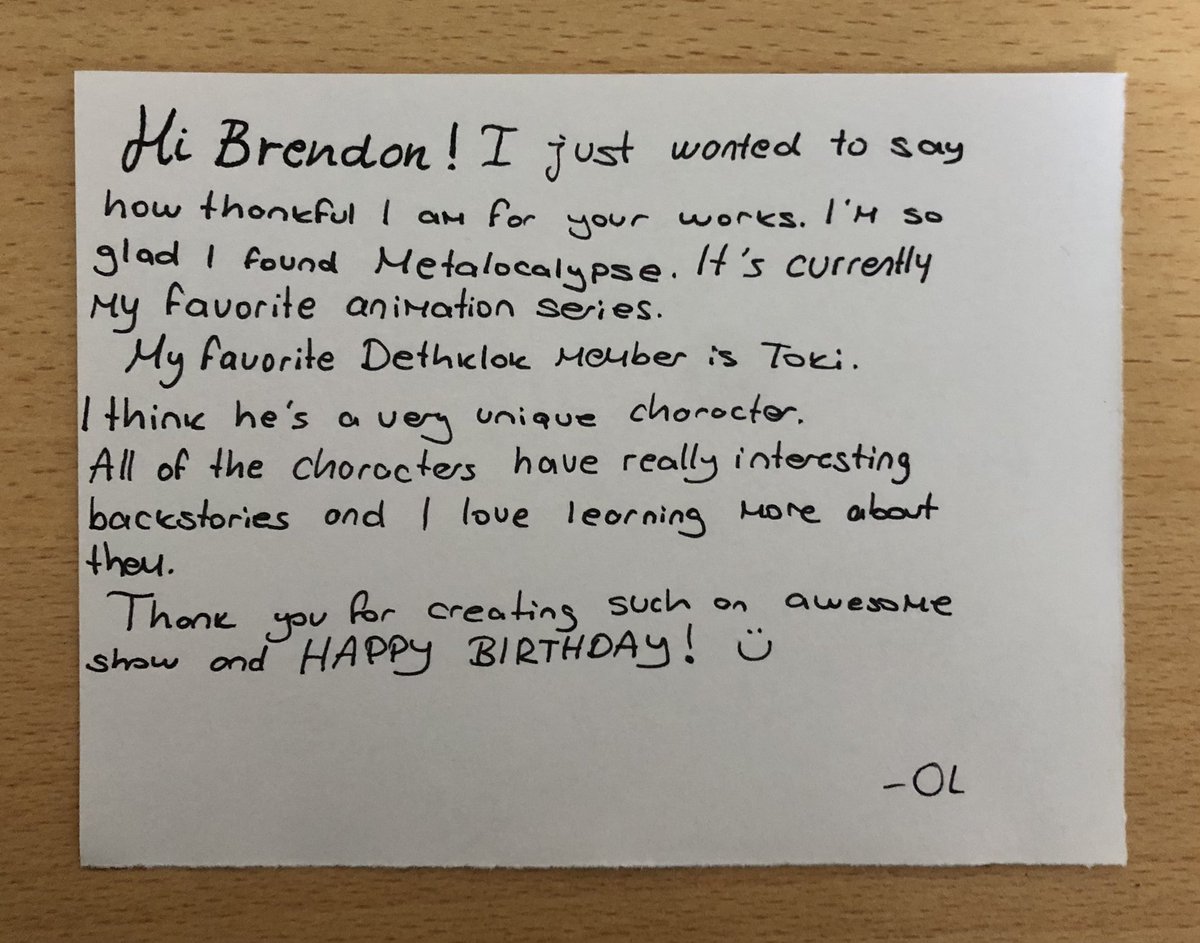 Hi Brendon! I just wanted to say
how thankful I am for your works. I'm so
glad I found Metalocalypse. It's currently
my favorite animation series.
My favorite Dethklok member is Toki.
I think he's a very unique character.
All of the characters have really interesting
backstories and I love learning more about
them.
Thank you for creating such an awesome
show and HAPPY BIRTHDAY! :)
-OL